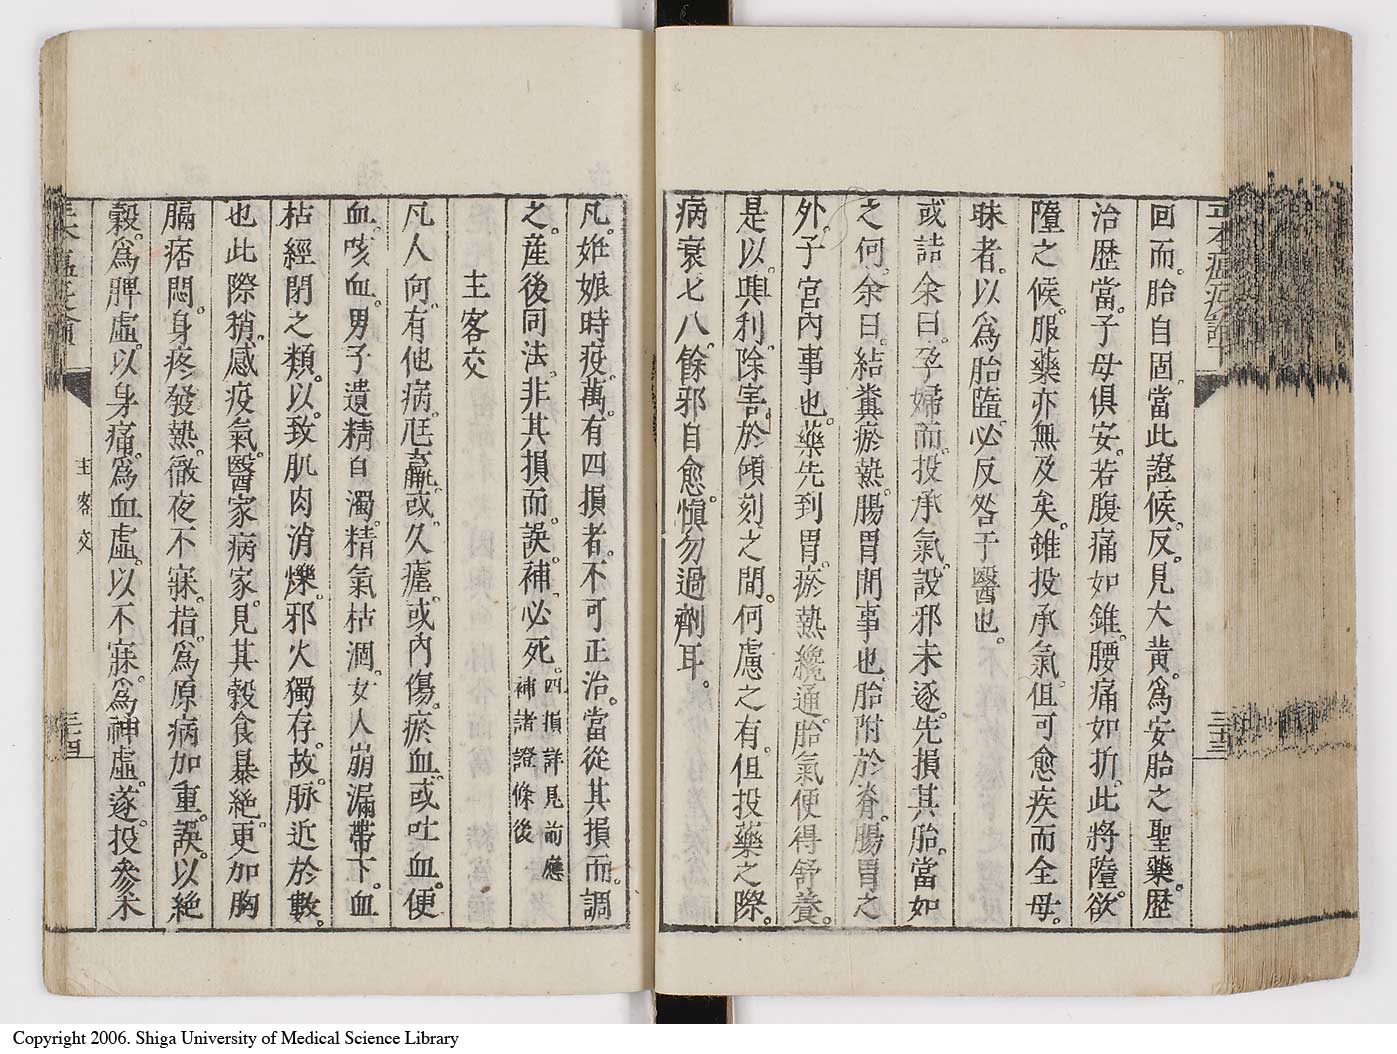 回而。胎自固。當此證候。反見大黄。爲安胎之聖藥。歴
治歴當。子母俱安。若腹痛如錐。腰痛如折。此將墮欲
墮之候。服藥亦無及矣。錐投承氣。但可愈疾而全母。
昧者。以爲胎墮。必反咎于醫也。
或詰余曰。孕婦而。投承氣。設邪未逐。先損其胎。當如
之何。余曰。結糞瘀熱。腸胃間事也。胎附於脊。腸胃之
外。子宮内事也。藥先到胃。瘀熱纔通。胎氣便得舒養。
是以。興利除害。於傾刻之間。何慮之有。但投藥之際。
病衰七八。餘邪自愈。愼勿過劑耳。
三十三
凡姙娠時疫。萬。有四損者。不可正治。當從其損而。調
之。産後同法。非其損而。誤補必死。四損詳見前應
補諸證條後
主客交
凡人向。有他病。尫羸。或久瘧。或内傷。瘀血。或吐血。便
血。咳血。男子遺精白濁。精氣枯涸。女人崩漏帶下。血
枯經閉之類。以。致肌肉消爍。邪火獨存。故。脉近於數。
也此際稍。感疫氣。醫家病家。見其穀食暴絶。更加胸
膈痞悶。身疼發熱。徹夜不寐。指。爲原病加重。誤。以絶
穀。爲脾虛。以身痛。爲血虛。以不寐。爲神虛。遂。投參朮
主客交
三十四